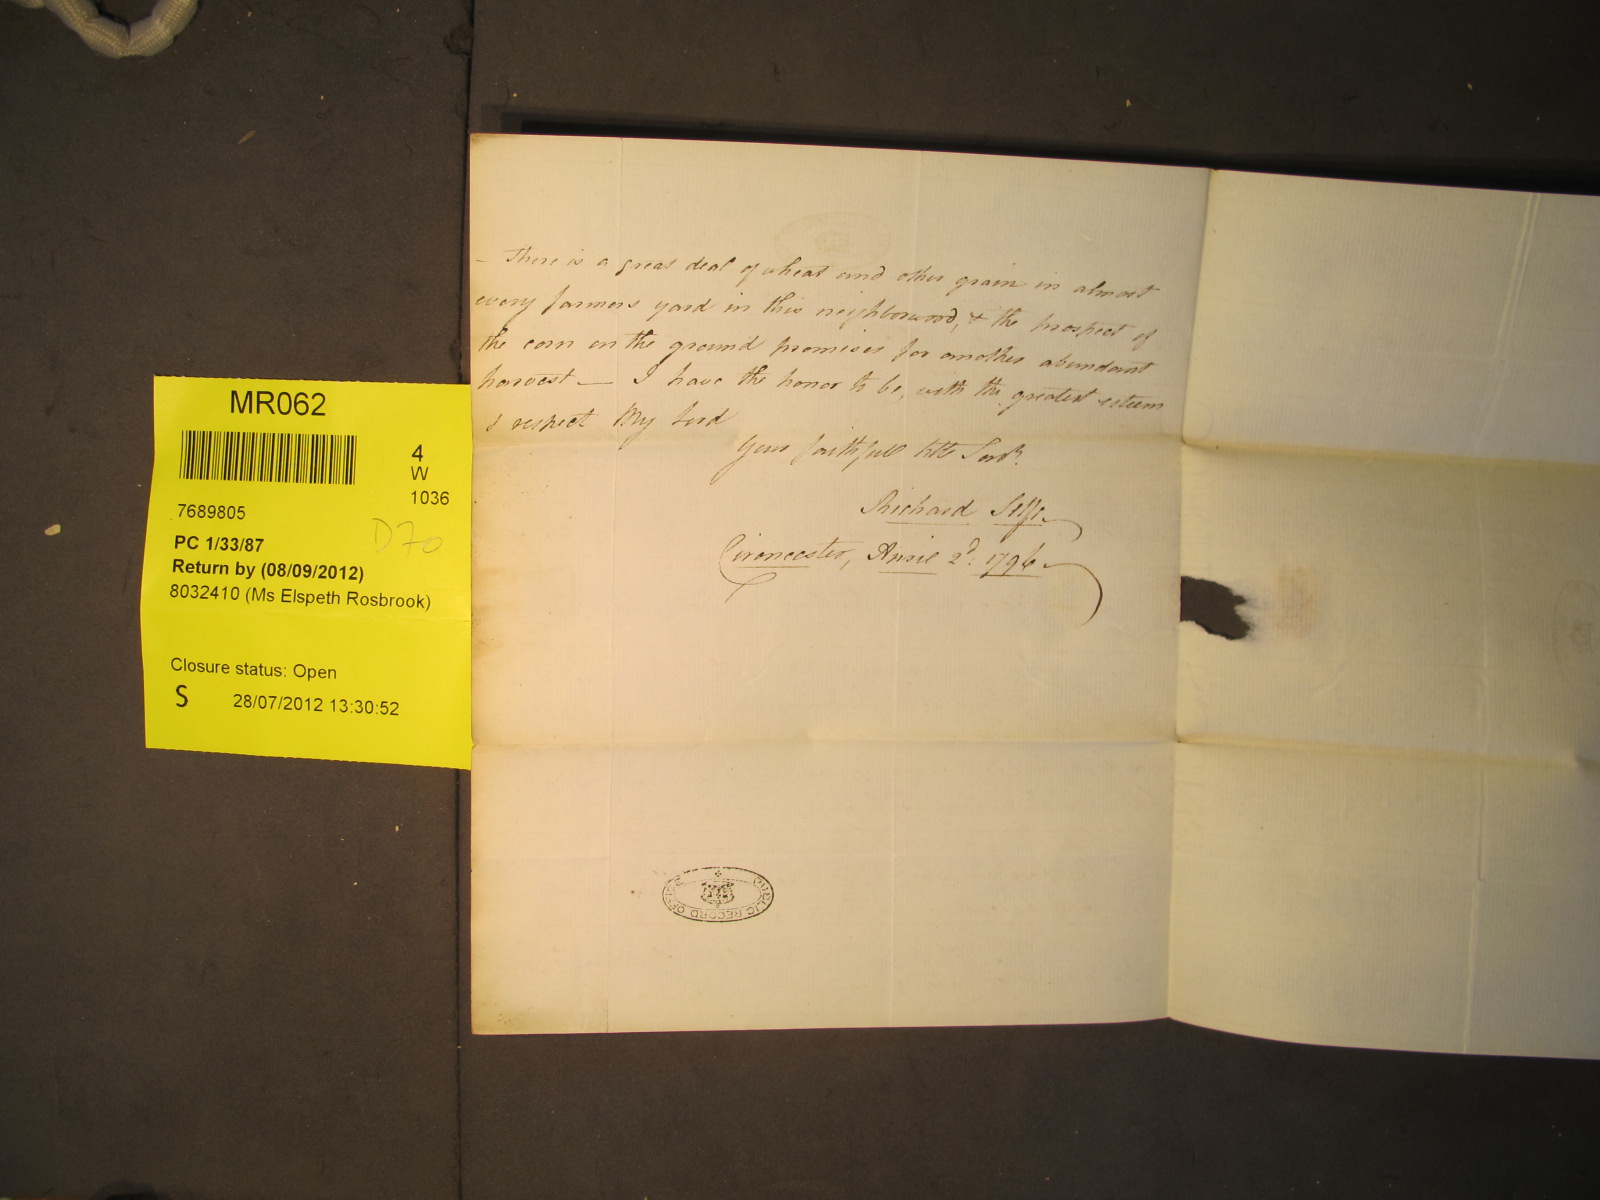 MR062
4
W
1036
7689805
D70
PC 1/33/87
Return by (08/09/2012)
8032410 (Ms Elspeth Rosbrook)
Closure status: Open
S 28/07/2012 13:30:52
— There is a great deal of wheat and other grain in almost
every farmers yard in this neighborwood, & the prospect of
the corn on the ground promises for another abundant
harvest — I have the honor to be, with the greatest esteem
& respect My Lord
Your faithfull Serv.t
Richard Selfe
Cirencester, April 2.d 1796
PUBLIC RECORD OFFICE